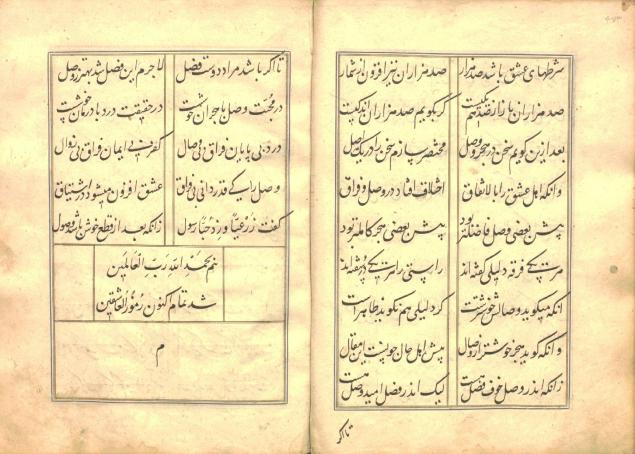 شرطهای عشق باشد صد هزار صد هزاران نیز افزون از شمار
صد هزاران باز از صد هم یکیست گر بگویم صد هزاران اندکیست
بعد ازین گویم سخن در هجر و وصل مختصر سازم سخن را در یک اصل
وانکه اهل عشق را بالاتفاق اختلاف افتاد در وصل و فراق
پیش بعضی وصل فاضلتر بود پیش بعضی هجر کاملتر بود
هر یکی فرقه دلیلی گفته‌اند راستی را هر یکی در سفته‌اند
آنکه میگوید وصالش خوشترست گر دلیلی هم نگوید ظاهرات
وانکه گوید هجر خوشتر از وصال پیش اهل حال خوبست این مقال
زانکه اندر وصل خوف فصل هست لیک اندر فصل امید وصل هست
تا اگر
تا اگر باشد مراد دوست فصل لاجرم این فصل شد بهتر ز وصل
در محبت وصل با هجران خوشست در حقیقت درد با درمان خوشست
درد بی پایان فراق بی وصال کفر بی ایمان فراق بی زوال
وصل را کی قدر دانی بی فراق عشق افزون میشود در اشتیاق
گفت زر غبا و زد حبا رسول زانکه بعد از قطع خوش باشد وصول
تم بحمد الله رب العالمین
شد تمام اکنون رموز العاشقین
م